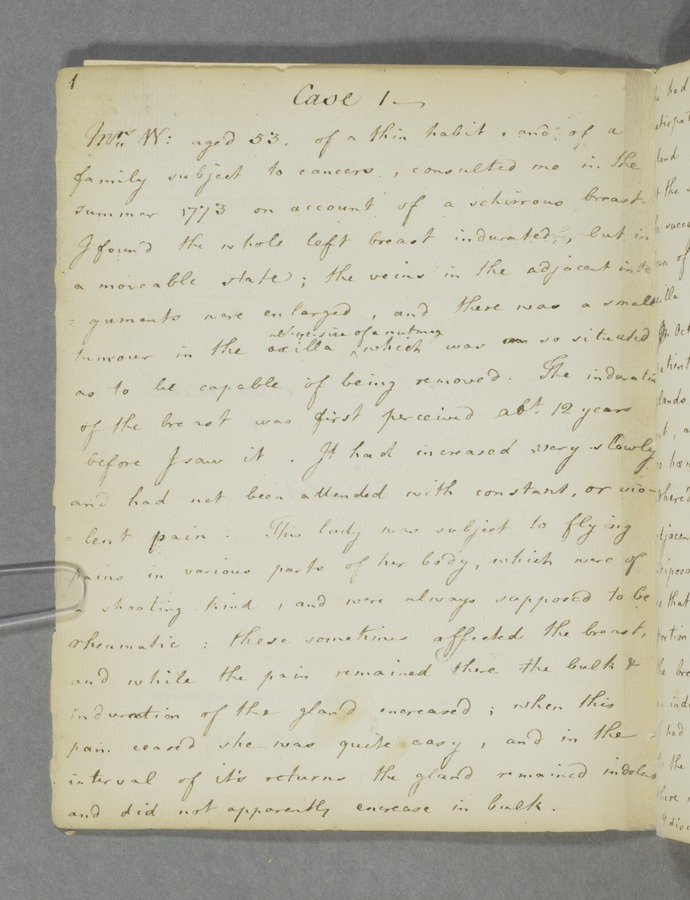 1
Case 1
Mrs. W: aged 53. of a thin habit, and of a
family subject to cancers, consulted me in the
summer 1773 on account of a schirrous breast.
I found the whole left breast indurated, but in
a moveable state; the veins in the adjacent inte
= guments were enlarged, and there was a small
abt. the size of a nutmeg
tumour in the axilla ^ which was so situated
as to be capable of being removed. The induration
of the breast was first perceived abt. 12 years
before I saw it. It had increased very slowly
and had not been attended with constant, or vio-
lent pain. This lady was subject to flying
pains in various parts of her body, which were of
a shooting kind, and were always supposed to be
rheumatic: these sometimes affected the breast,
and while the pain remained there the bulk &
induration of the gland increased; when this
pain ceased she was quite easy, and in the
interval of it's returns the gland remained indolent
and did not apparently encrease in bulk.